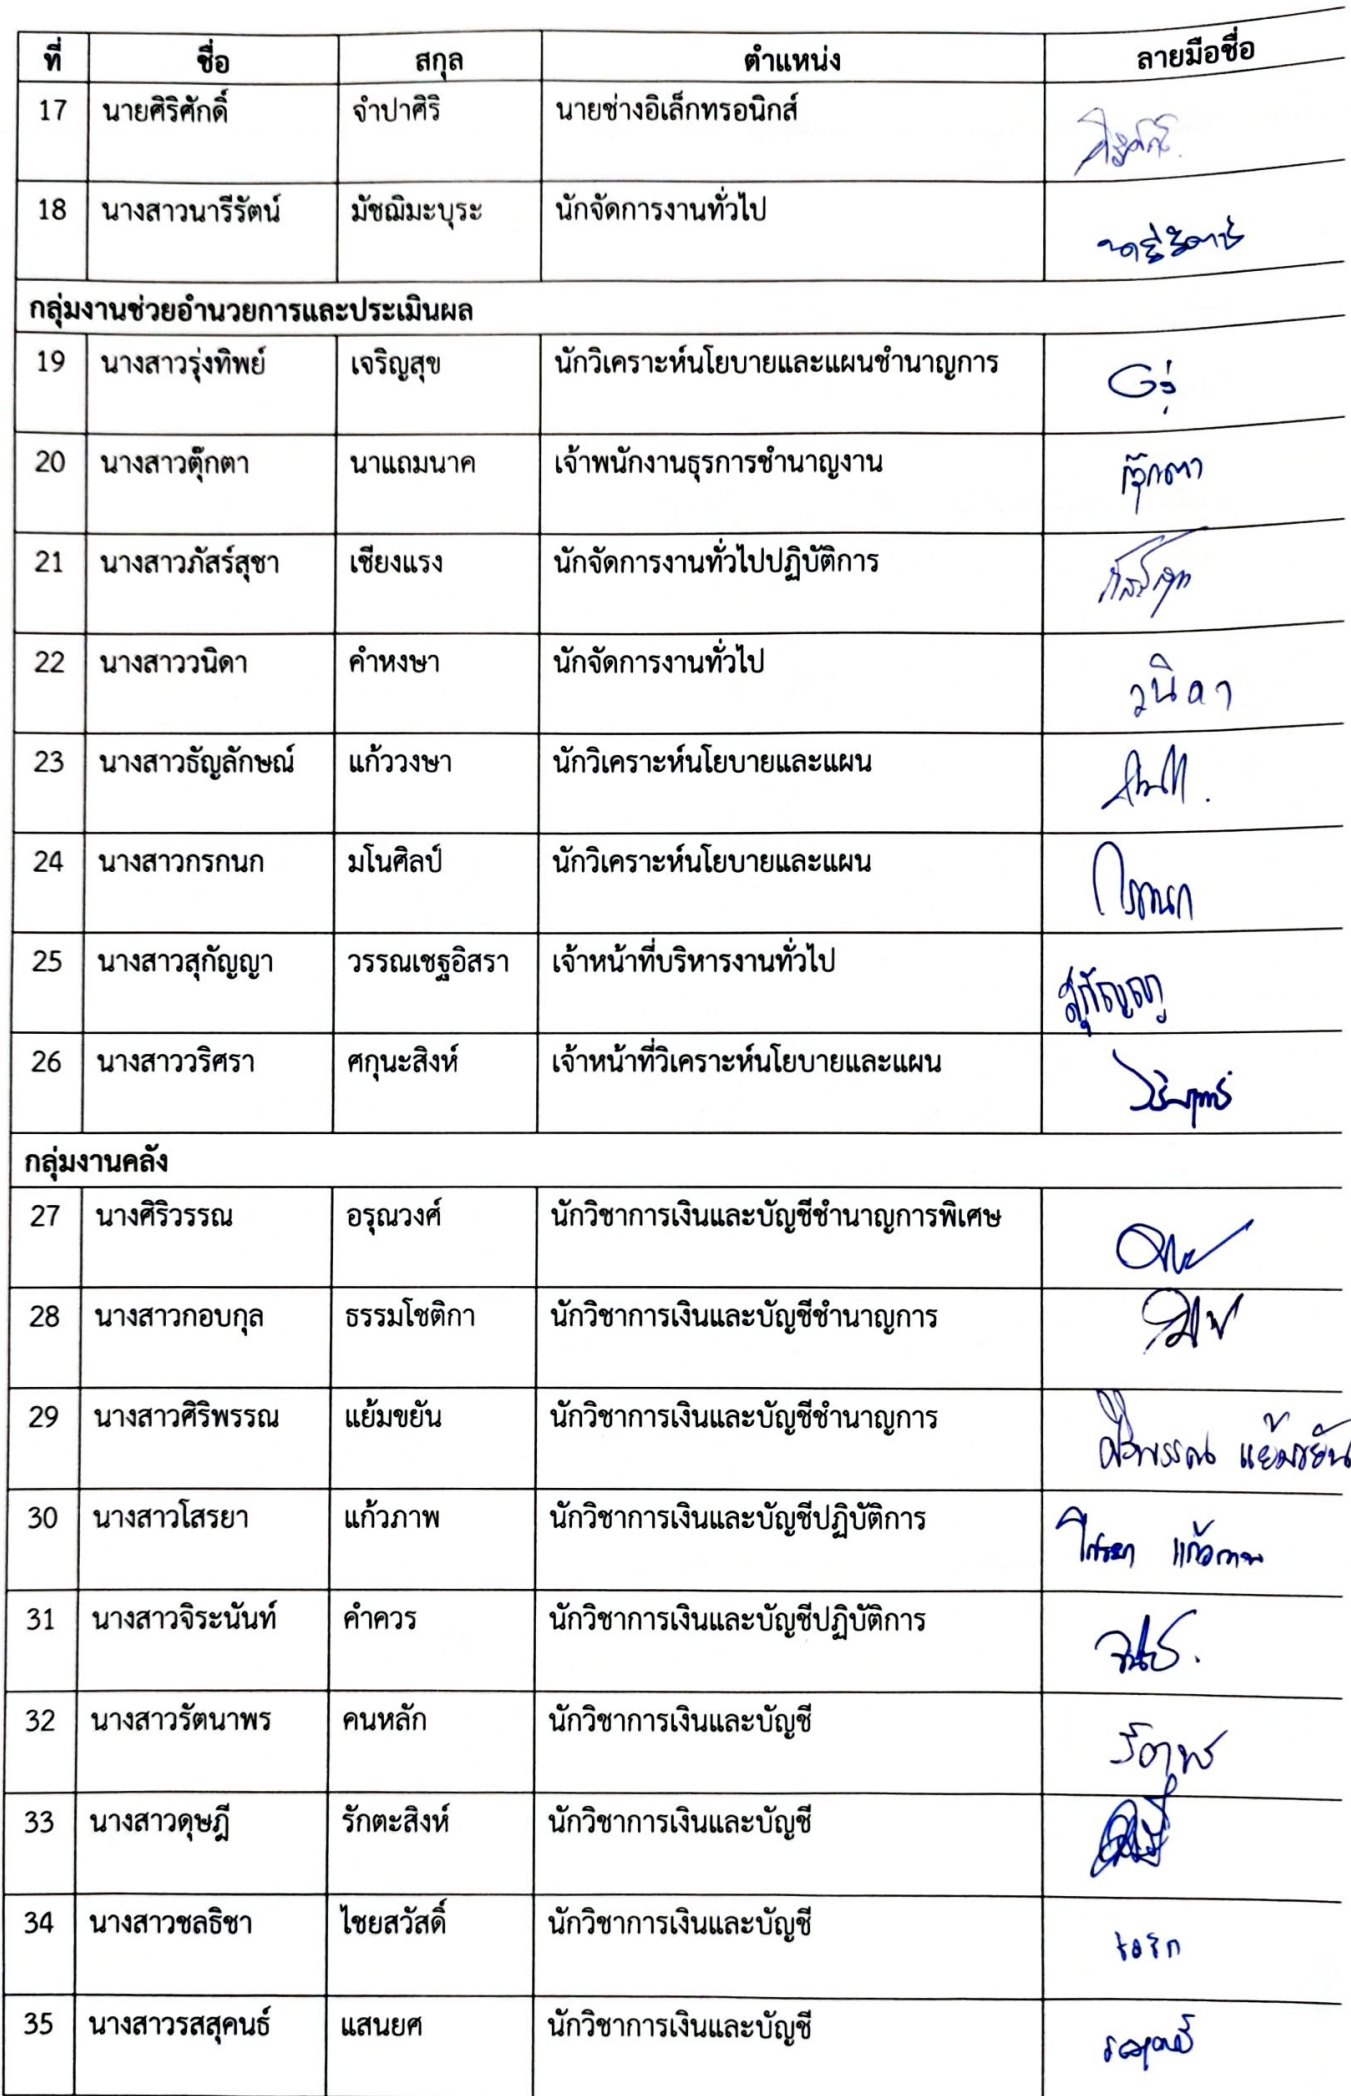 ที่ ชื่อ สกุล ตำแหน่ง ลายมือชื่อ
17 นายศิริศักดิ์ จำปาศิริ นายช่างอิเล็กทรอนิกส์
18 นางสาวนารีรัตน์ มัชฌิมะบุระ นักจัดการงานทั่วไป
กลุ่มงานช่วยอำนวยการและประเมินผล
19 นางสาวรุ่งทิพย์ เจริญสุข นักวิเคราะห์นโยบายและแผนชำนาญการ
20 นางสาวตุ๊กตา นาแถมนาค เจ้าพนักงานธุรการชำนาญงาน ตุ๊กตา
21 นางสาวภัสร์สุชา เชียงแรง นักจัดการงานทั่วไปปฏิบัติการ
22 นางสาววนิดา คำหงษา นักจัดการงานทั่วไป วนิดา
23 นางสาวธัญลักษณ์ แก้ววงษา นักวิเคราะห์นโยบายและแผน
24 นางสาวกรกนก มโนศิลป์ นักวิเคราะห์นโยบายและแผน กรกนก
25 นางสาวสุกัญญา วรรณเชฐอิสรา เจ้าหน้าที่บริหารงานทั่วไป สุกัญญา
26 นางสาววริศรา ศกุนะสิงห์ เจ้าหน้าที่วิเคราะห์นโยบายและแผน
กลุ่มงานคลัง
27 นางศิริวรรณ อรุณวงศ์ นักวิชาการเงินและบัญชีชำนาญการพิเศษ
28 นางสาวกอบกุล ธรรมโชติกา นักวิชาการเงินและบัญชีชำนาญการ
29 นางสาวศิริพรรณ แย้มขยัน นักวิชาการเงินและบัญชีชำนาญการ ศิริพรรณ แย้มขยัน
30 นางสาวโสรยา แก้วภาพ นักวิชาการเงินและบัญชีปฏิบัติการ โสรยา แก้วภาพ
31 นางสาวจิระนันท์ คำควร นักวิชาการเงินและบัญชีปฏิบัติการ
32 นางสาวรัตนาพร คนหลัก นักวิชาการเงินและบัญชี
33 นางสาวดุษฎี รักตะสิงห์ นักวิชาการเงินและบัญชี
34 นางสาวชลธิชา ไชยสวัสดิ์ นักวิชาการเงินและบัญชี
35 นางสาวรสสุคนธ์ แสนยศ นักวิชาการเงินและบัญชี